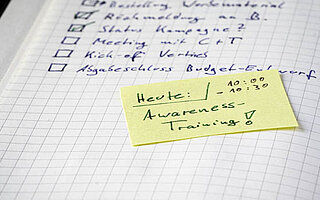 Bestellung Werbematerial
Rückmeldung an B.
Status Kampagne?
Meeting mit C+T
Kick-off Vertrieb
Abgabeschluss Budget-Entwurf
Heute: 10:00
- 10:30
Awareness-
Training!